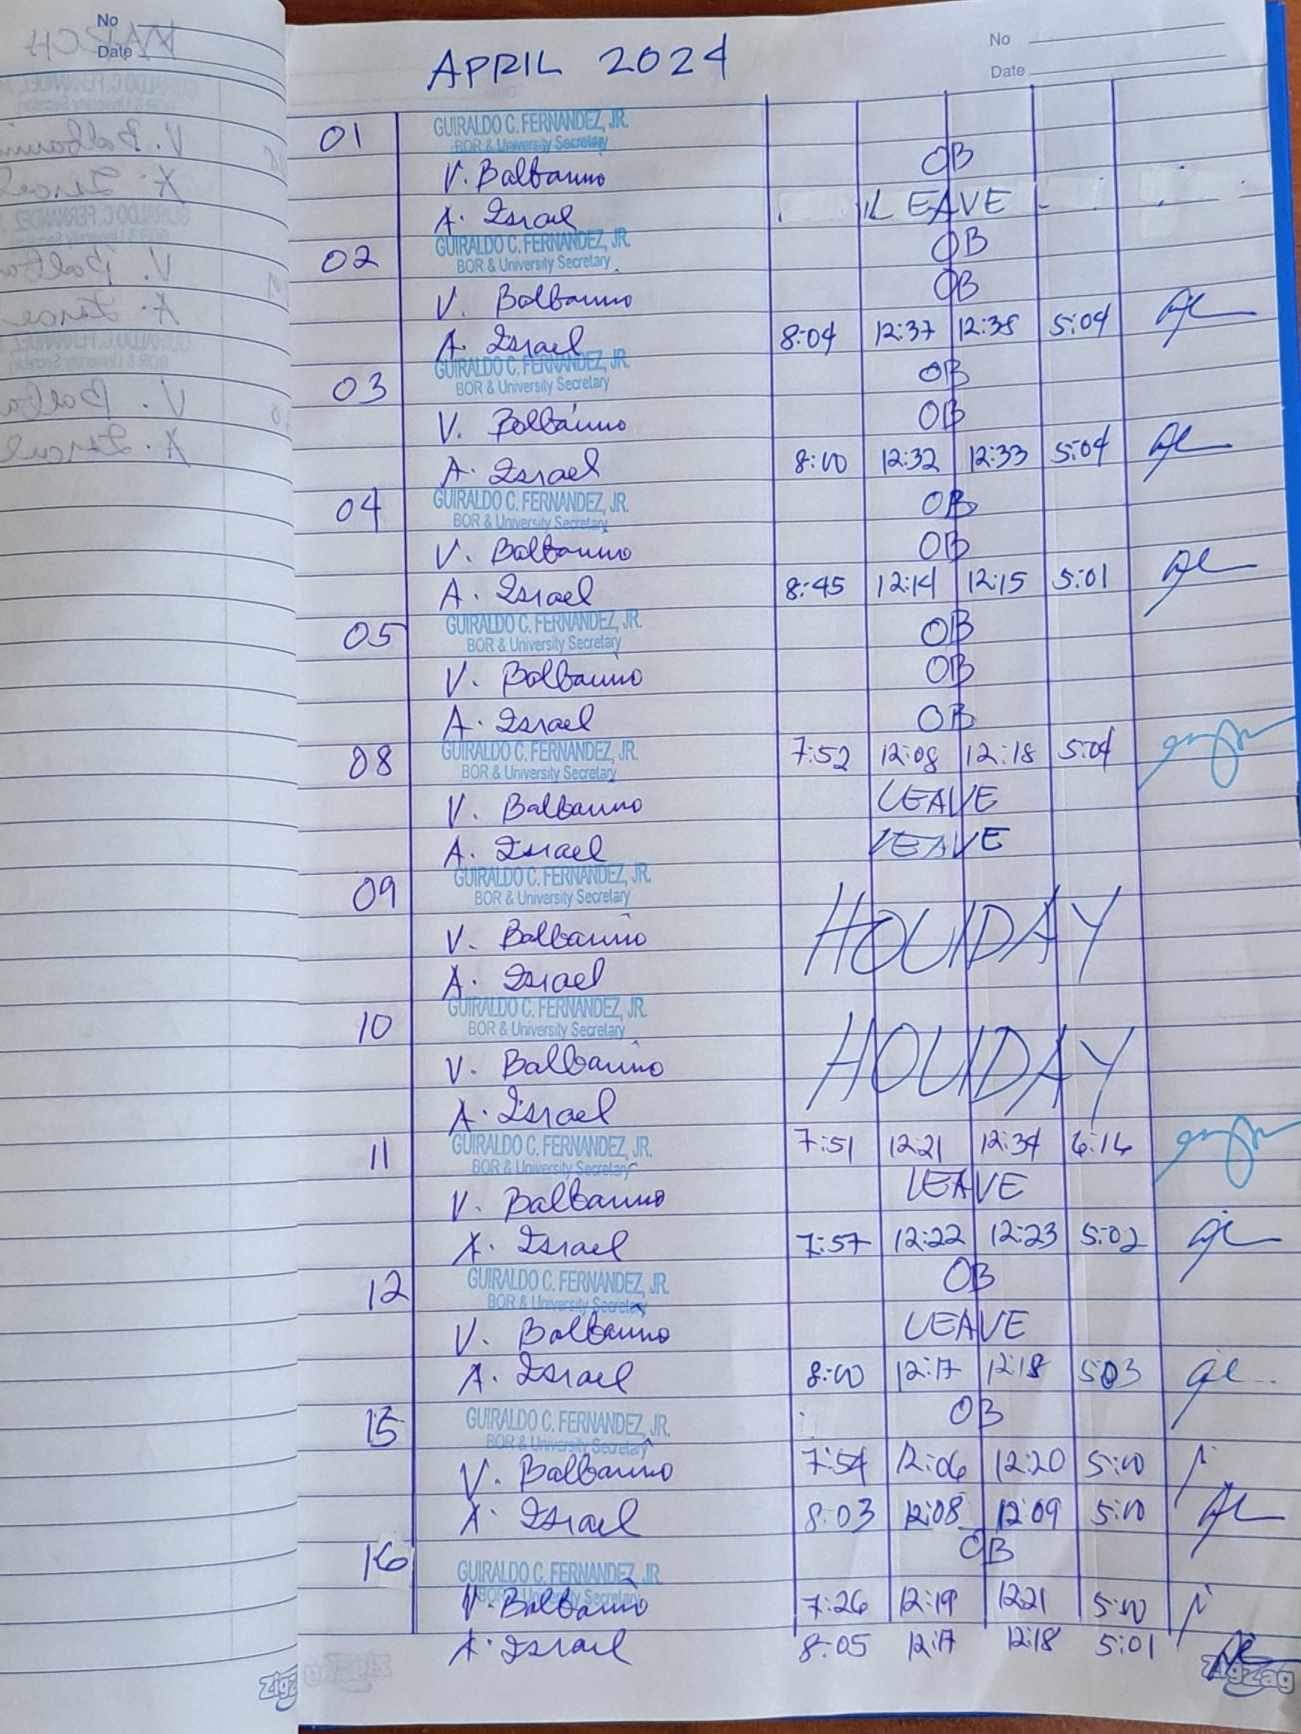 No
Date
No
Date
APRIL 2024
01 GUIRALDO C. FERNANDEZ, JR.
BOR & University Secretary
V. Balbarino OB
A. Israel LEAVE
02 GUIRALDO C. FERNANDEZ, JR. OB
BOR & University Secretary
V. Balbarino OB
A. Israel 8:04 12:37 12:38 5:04
03 GUIRALDO C. FERNANDEZ, JR. OB
BOR & University Secretary
V. Balbarino OB
A. Israel 8:00 12:32 12:33 5:04
04 GUIRALDO C. FERNANDEZ, JR. OB
BOR & University Secretary
V. Balbarino OB
A. Israel 8:45 12:14 12:15 5:01
05 GUIRALDO C. FERNANDEZ, JR. OB
BOR & University Secretary
V. Balbarino OB
A. Israel OB
08 GUIRALDO C. FERNANDEZ, JR. 7:52 12:08 12:18 5:04
BOR & University Secretary
V. Balbarino LEAVE
A. Israel LEAVE
09 GUIRALDO C. FERNANDEZ, JR.
BOR & University Secretary
V. Balbarino HOLIDAY
A. Israel
10 GUIRALDO C. FERNANDEZ, JR.
BOR & University Secretary
V. Balbarino HOLIDAY
A. Israel
11 GUIRALDO C. FERNANDEZ, JR. 7:51 12:21 12:34 6:16
BOR & University Secretary
V. Balbarino LEAVE
A. Israel 7:57 12:22 12:23 5:02
12 GUIRALDO C. FERNANDEZ, JR. OB
BOR & University Secretary
V. Balbarino LEAVE
A. Israel 8:00 12:17 12:18 5:03
15 GUIRALDO C. FERNANDEZ, JR. OB
BOR & University Secretary
V. Balbarino 7:54 12:06 12:20 5:00
A. Israel 8:03 12:08 12:09 5:00
16 GUIRALDO C. FERNANDEZ, JR. OB
BOR & University Secretary
V. Balbarino 7:26 12:19 12:21 5:00
A. Israel 8:05 12:17 12:18 5:01
Zigzag